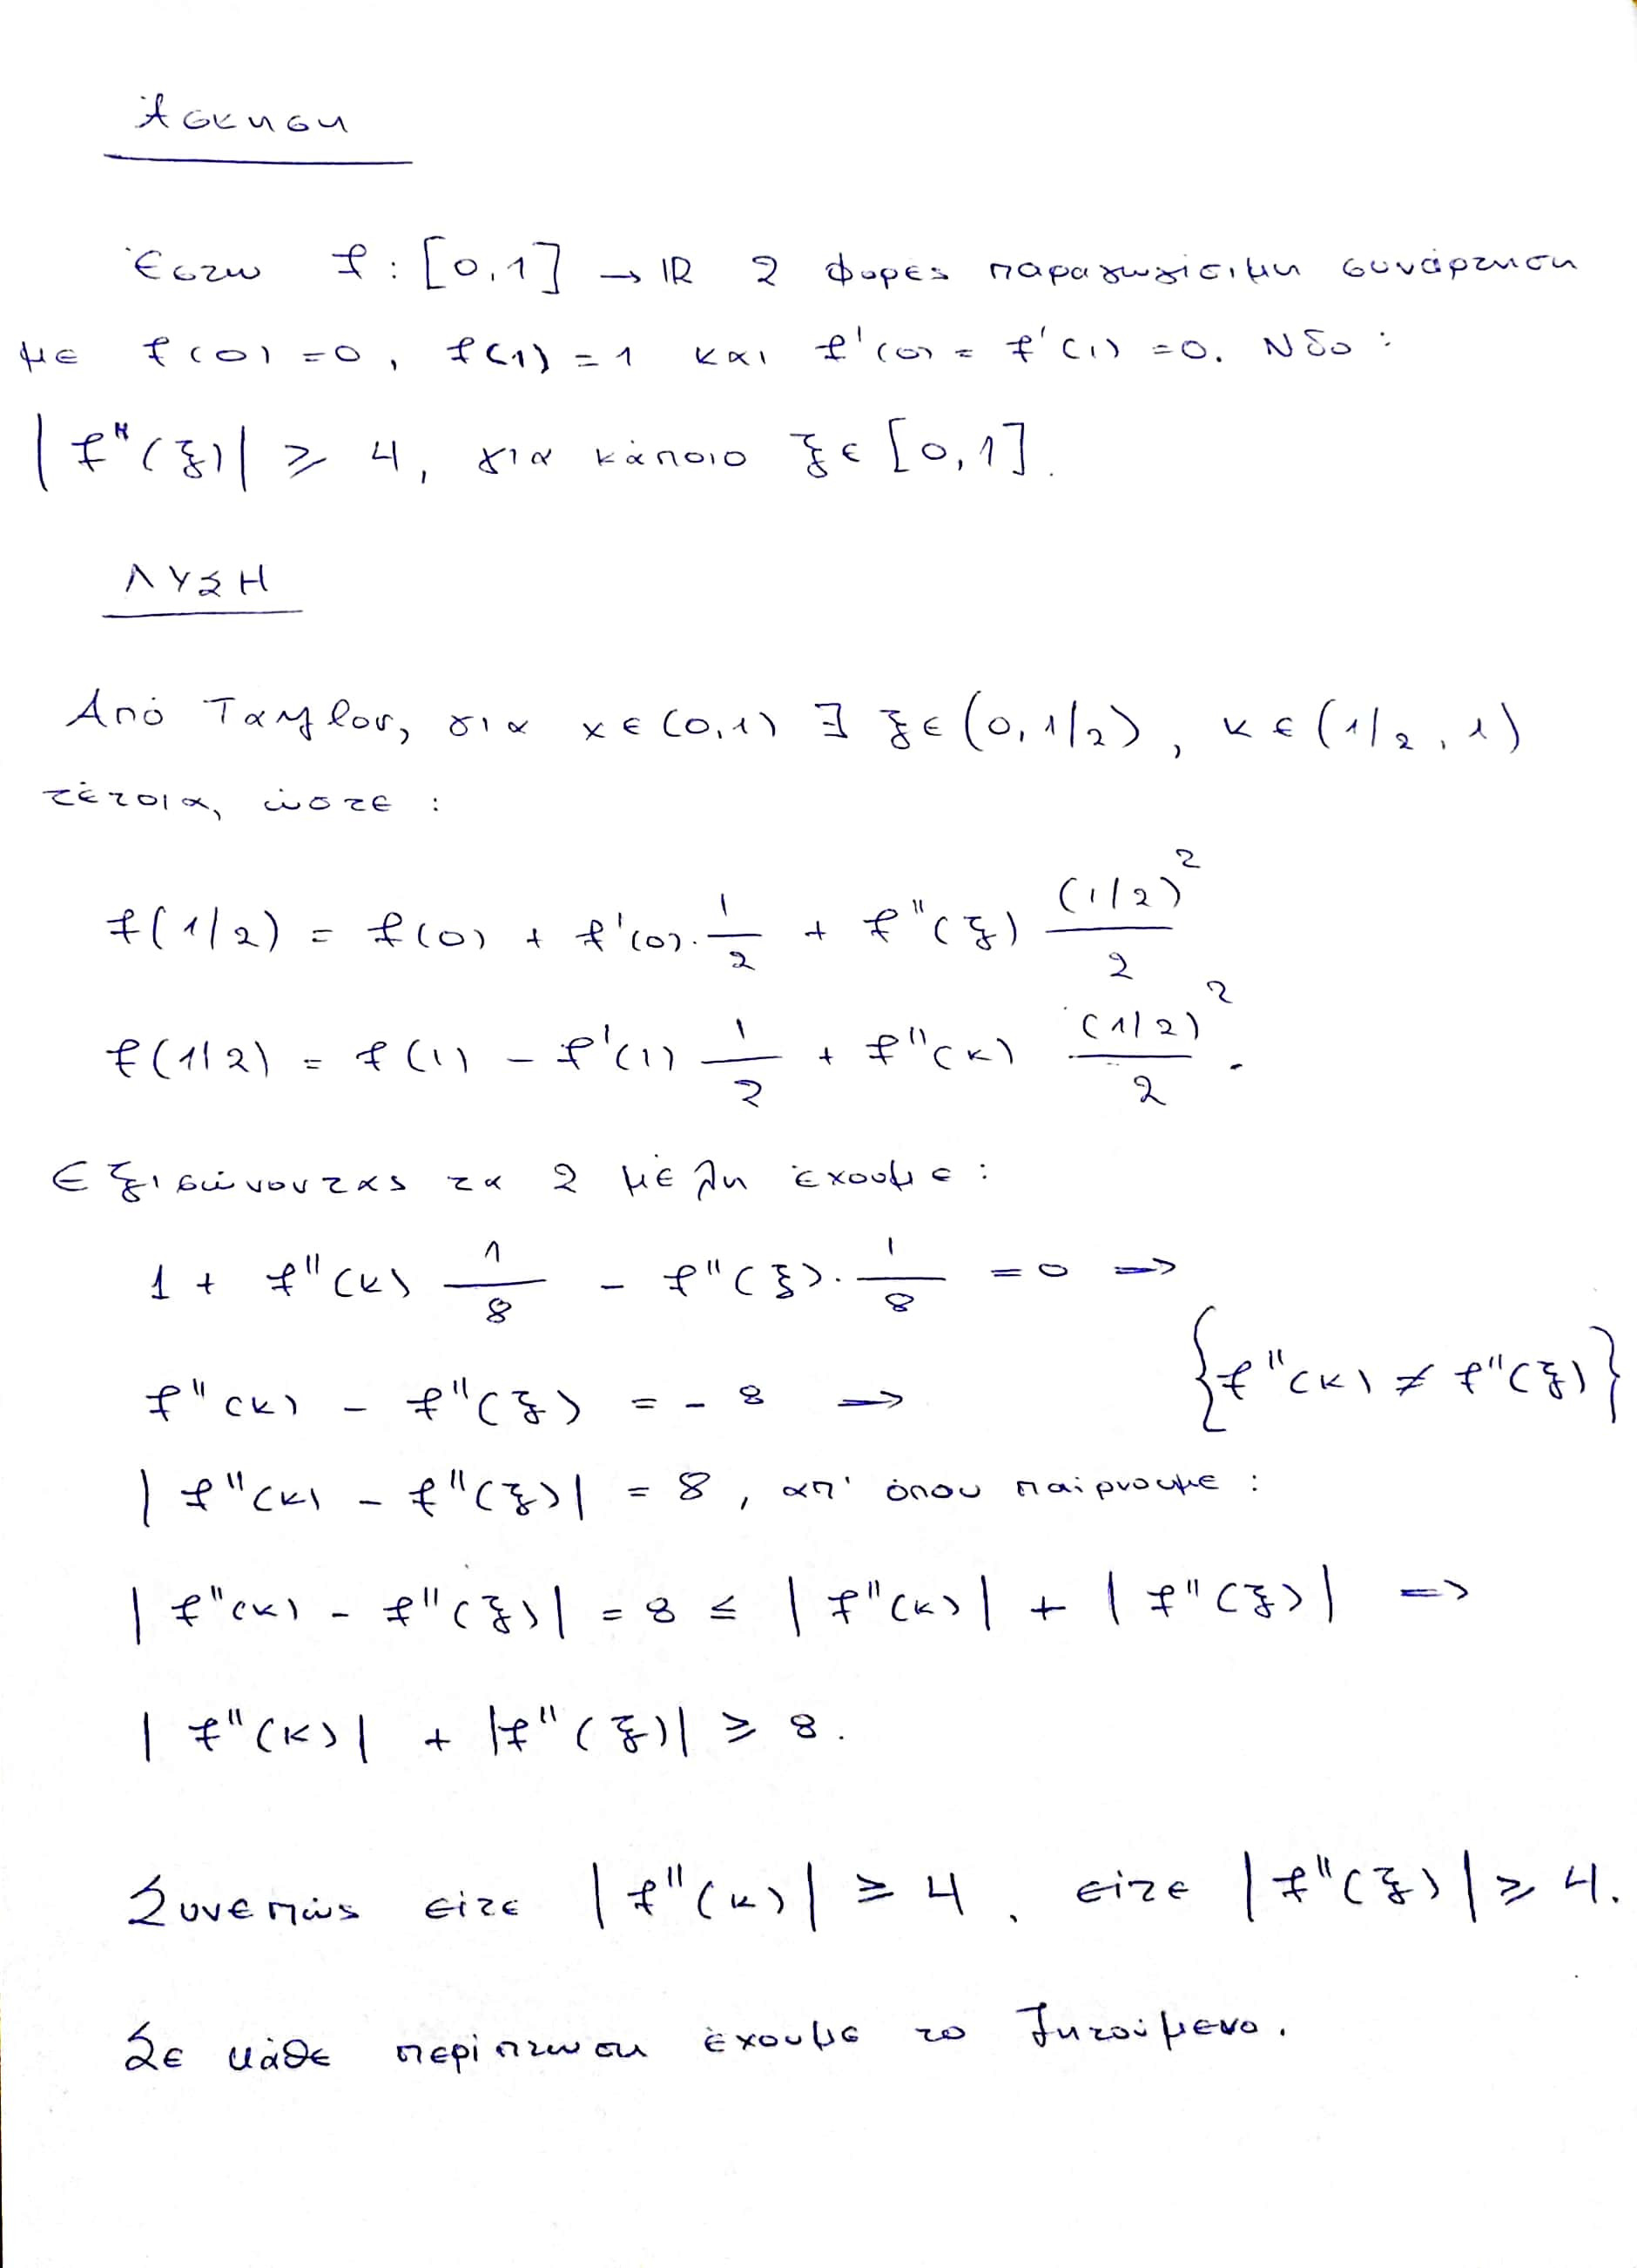 Άσκηση
Έστω f : [0,1] → ℝ 2 φορές παραγωγίσιμη συνάρτηση
με f(0) = 0, f(1) = 1 και f'(0) = f'(1) = 0. Νδο :
|f''(ξ)| ≥ 4, για κάποιο ξ ∈ [0,1].
ΛΥΣΗ
Από Taylor, για x ∈ (0,1) ∃ ξ ∈ (0, 1/2), κ ∈ (1/2, 1)
τέτοια, ώστε :
f(1/2) = f(0) + f'(0)·1/2 + f''(ξ) (1/2)²/2
f(1/2) = f(1) − f'(1) 1/2 + f''(κ) (1/2)²/2.
Εξισώνοντας τα 2 μέλη έχουμε :
1 + f''(κ) 1/8 − f''(ξ)·1/8 = 0 ⇒
f''(κ) − f''(ξ) = −8 ⇒ {f''(κ) ≠ f''(ξ)}
|f''(κ) − f''(ξ)| = 8, απ' όπου παίρνουμε :
|f''(κ) − f''(ξ)| = 8 ≤ |f''(κ)| + |f''(ξ)| ⇒
|f''(κ)| + |f''(ξ)| ≥ 8.
Συνεπώς είτε |f''(κ)| ≥ 4, είτε |f''(ξ)| ≥ 4.
Σε κάθε περίπτωση έχουμε το ζητούμενο.